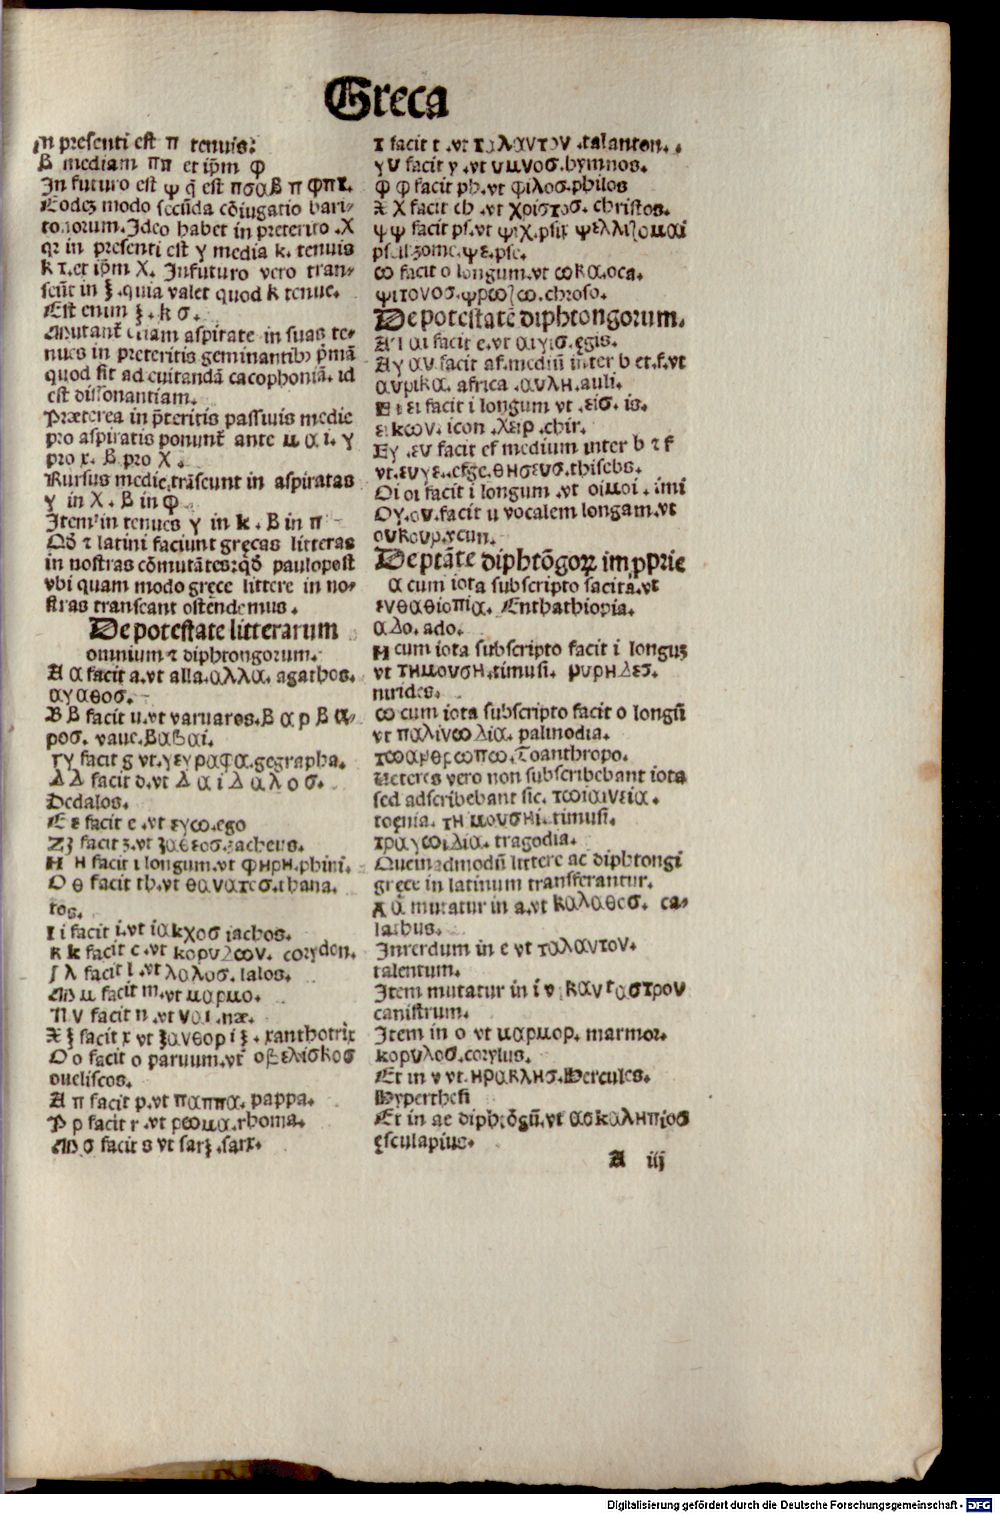 Greca
In presenti est π tenuis:
β mediam ππ et ip̄m φ
In futuro est ψ q̄ est πσαβ π φπτ.
Eodeꝫ modo secūda cōiugatio bari⸗
tonorum. Ideo habet in preterito .χ
qr in presenti est γ media k. tenuis
k τ. et ip̄m χ. In futuro vero tran⸗
seūt in ξ. quia valet quod k tenue.
Est enim ξ. k σ.
Mutant̄ etiam aspirate in suas te⸗
nues in preteritis geminantibꝰ p̄mā
quod fit ad euitandā cacophoniā. id
est dissonantiam.
Præterea in p̄teritis passiuis medie
pro aspiratis ponunt̄ ante μ α ι. γ
pro χ. β pro χ.
Rursus medie trāseunt in aspiratas
γ in χ. β in φ
Item in tenues γ in k. β in π
Qd̄ ⁊ latini faciunt gręcas litteras
in nostras cōmutātes: qd̄ paulopost
vbi quam modo gręce littere in no⸗
stras transeant ostendemus.
De potestate litterarum
omnium ⁊ diphtongorum.
A α facit a. vt alla. αλλα. agathos.
αγαθοσ.
B β facit u. vt varuaros. β α ρ β α⸗
ροσ. vaue. βαβαι.
Γγ facit g vt. γεγραφα. gegrapha.
Δ Δ facit d. vt Δ α ι Δ α λ ο σ.
Dedalos.
E ε facit e. vt εγω. ego
Z ζ facit z. vt ζαθεοσ. zacheus.
H η facit i longum. vt φηρη. phiri.
O θ facit th. vt θανατεσ. thana.
tos.
I i facit i. vt ιακχοσ iachos.
K k facit c. vt κορυλων. corydon.
λ facit l. vt λαλοσ. lalos.
M μ facit m. vt μαρμο.
N ν facit n. vt ναι. næ.
X ξ facit x vt ξανθορ ι ξ. xanthotrix
O o facit o paruum. vt οβελισκοσ
oueliscos.
π facit p. vt παππα. pappa.
P ρ facit r. vt ρωμα. rhoma.
σ facit s vt sarξ. sarx.
τ facit t. vt ταλαντον. talanton.
γ υ facit y. vt υμνοσ. hymnos.
φ φ facit ph. vt φιλοσ. philos
X χ facit ch. vt χριστοσ. christos.
ψ ψ facit ps. vt ψιχ. psix ψελλιζομαι
psellizome. ψε. pse.
ω facit o longum. vt ωκα. oca.
ψιτονοσ. ψρωζω. chroso.
De potestate diphtongorum.
A ι αι facit e. vt αιγισ. ęgis.
Aγ αυ facit af. mediū inter b et. f. vt
αυρικα. africa. αυλη. auli.
E ι ει facit i longum vt. εισ. is.
εικων. icon. χειρ. chir.
Eγ. ευ facit ef medium inter b ⁊ f
vt. ευγε. efge. θησευσ. thisebs.
Oi οι facit i longum. vt οιμοι. imi
Oγ. ου. facit u vocalem longam. vt
ουκουρ. vcun.
De ptāte diphtōgoꝝ impprie
α cum iota subscripto facit a. vt
ενθαθιοπια. Enthathiopia.
αΔο. ado.
H cum iota subscripto facit i longuꝫ
vt τημουση. timusi. ρυρηΔεσ.
nirides.
ω cum iota subscripto facit o longū
vt παλινωΔια. palinodia.
τωαρθρωπω. Toanthropo.
Veteres vero non subscribebant iota
sed adscribebant sic. τωιαινεια.
toęnia. τη μουσηι. timusi.
τραγωιΔια. tragodia.
Quemadmodū littere ac diphtongi
gręce in latinum transferantur.
A α mutatur in a. vt καλαθεσ. ca⸗
lathus.
Interdum in e vt ταλαυτον.
talentum.
Item mutatur in i v. καντασtρου
canistrum.
Item in o vt μαρμορ. marmor.
κορυλοσ. corylus.
Et in v vt. ηρακλησ. Hercules.
Hyperthesi
Et in ae diphtōgū. vt ασκαληπιοσ
ęsculapius.
A iij
Digitalisierung gefördert durch die Deutsche Forschungsgemeinschaft - DFG